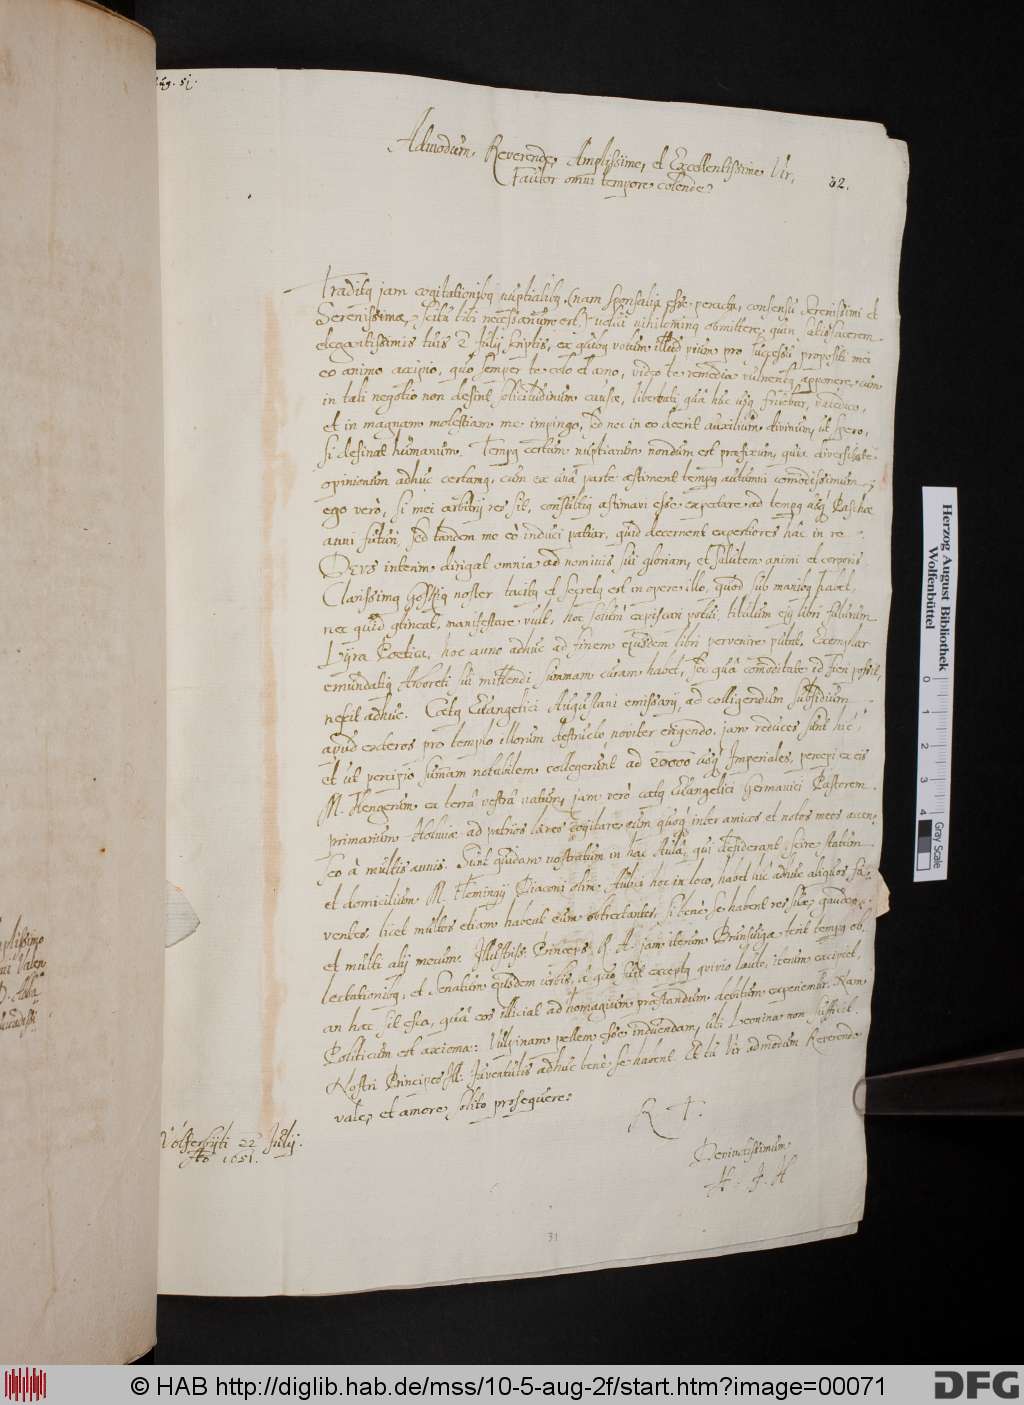 Aug. 51.
Admodum Reverende, Amplissime, et Excellentissime Vir,
Fautor omni tempore colende.
32.
Traditq jam cogitationibq nuptialibq (nam sponsalia esse peracta, consensu Serenissimi et
Serenissimæ, scitu tibi necessarium est,) volui nihilominq obmittere, quin satisfacerem
elegantissimis tuis 2 Julij scriptis, ex quibq votum illud pium pro successu propositi mei
eo animo accipio, quo semper te colo et amo, video te remedia vulneribq apponere, cum
in tali negotio non desint solicitudinum causæ, libertati quâ huc usq fruebar,
et in magnam molestiam me impingo, sed nec in eo deerit auxilium divinum, ut spero,
si desinat humanum. Tempq certum nuptiarum nondum est præfixum, quia diversitate
opinionum adhuc certamq, cum ex unâ parte æstiment tempq autumni commodissimum,
ego verò, si mei arbitrij res sit, consultiq æstimavi esse expectare ad tempq usq Paschæ
anni futuri, sed tandem me eò induci patiar, quid decernent expertiores hâc in re.
DEUS interim dirigat omnia ad nominis sui gloriam, et salutem animi et corporis.
Clarissimq noster tacitq et secretq est in opere illo, quod sub manibq habet,
nec quid contineat, manifestare vult, hoc solum expiscari potui, titulum ejq libri futurum
Lyra Poetica, hoc anno adhuc ad finem ejusdem libri pervenire putat. Exemplar
emundatiq Arboreti sui mittendi summam curam habet, sed quâ commoditate id fieri possit,
nescit adhuc. Cætq Evangelici Augustani emissarij, ad colligendum subsidium
apud exteros pro templo illorum destructo noviter erigendo, jam reduces sunt hic,
et ut percipio summam notabilem collegerunt ad 20000 usq Imperiales, percepi ex eis
M. Hengerum ex terrâ vestrâ natum, jam verò cætq Evangelici Germanici Pastorem
primarium Holmiæ ad patrios lares cogitare, eum quoq inter amicos et notos meos accen,
seo à multis annis. Sunt quidam nostratum in hac Aulâ, qui desiderant scire statum
et domicilium M. Flemingij Diaconi olim Aulici hoc in loco, habet hic adhuc aliquos fa,
ventes, licet multos etiam habeat eum obtrectantes, si benè se habent res suæ, gaudeo,
et multi alij mecum. Illustriss: Princeps R. A. jam iterum Brunsvigæ terit tempq ob,
lectationibq, et Senatum ejusdem urbis, à quo fuit exceptq quivis laute, iterum excipiet,
an hæc sit esca, quâ eos illiciat ad homagium præstandum, ac citium experiemur. Nam
Politicum est axioma: Vulpinam pellem esse induendam, ubi Leonina non sufficit.
Nostri Principes Ill: Juventutis adhuc benè se habent. Et tu Vir admodum Reverende
vale, et amore solito prosequere:
R T.
Devinctissimum
H. J. H
Wolferbyti 22 Julij.
Ao 1651.
31
Herzog August Bibliothek
Wolfenbüttel
0 1 2 3 4
Gray Scale
© HAB http://diglib.hab.de/mss/10-5-aug-2f/start.htm?image=00071
DFG